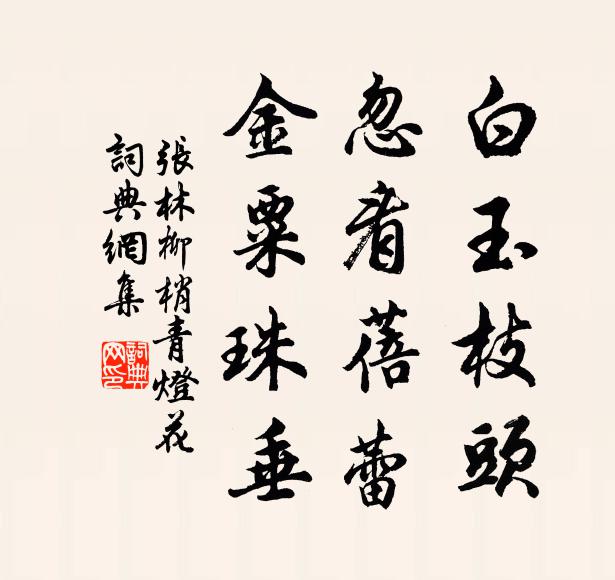 白玉枝頭
忽看蓓蕾
金粟珠垂
張林柳梢青燈花
詞典網集
詞典
网印